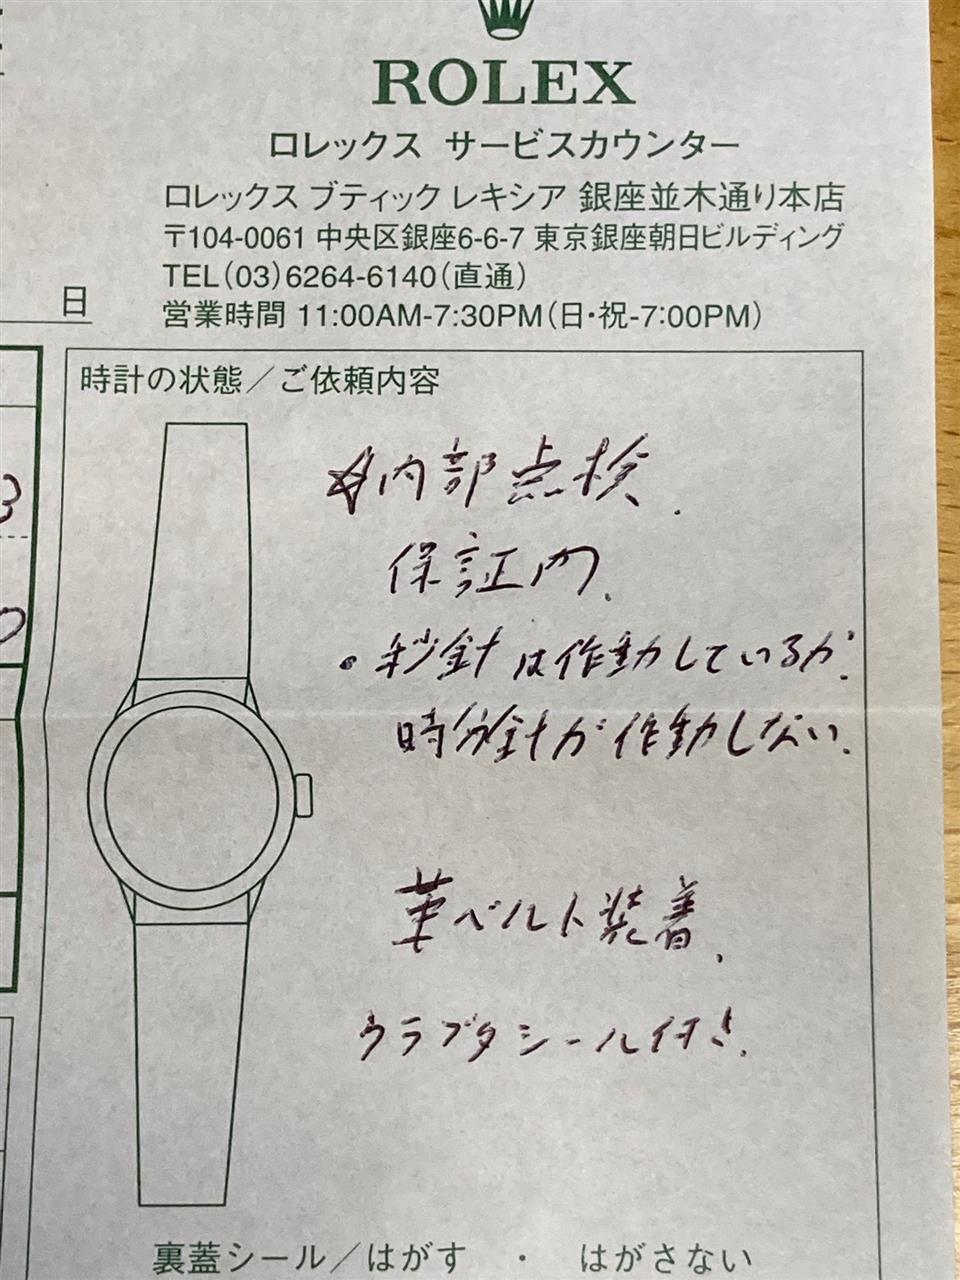 ROLEX
ロレックス サービスカウンター
ロレックス ブティック レキシア 銀座並木通り本店
〒104-0061 中央区銀座6-6-7 東京銀座朝日ビルディング
TEL(03)6264-6140(直通)
営業時間 11:00AM-7:30PM(日・祝-7:00PM)
日
時計の状態/ご依頼内容
☆内部点検.
保証内.
・秒針は作動しているが.
時分針が作動しない.
革ベルト装着.
ウラブタシール付き.
裏蓋シール/はがす ・ はがさない